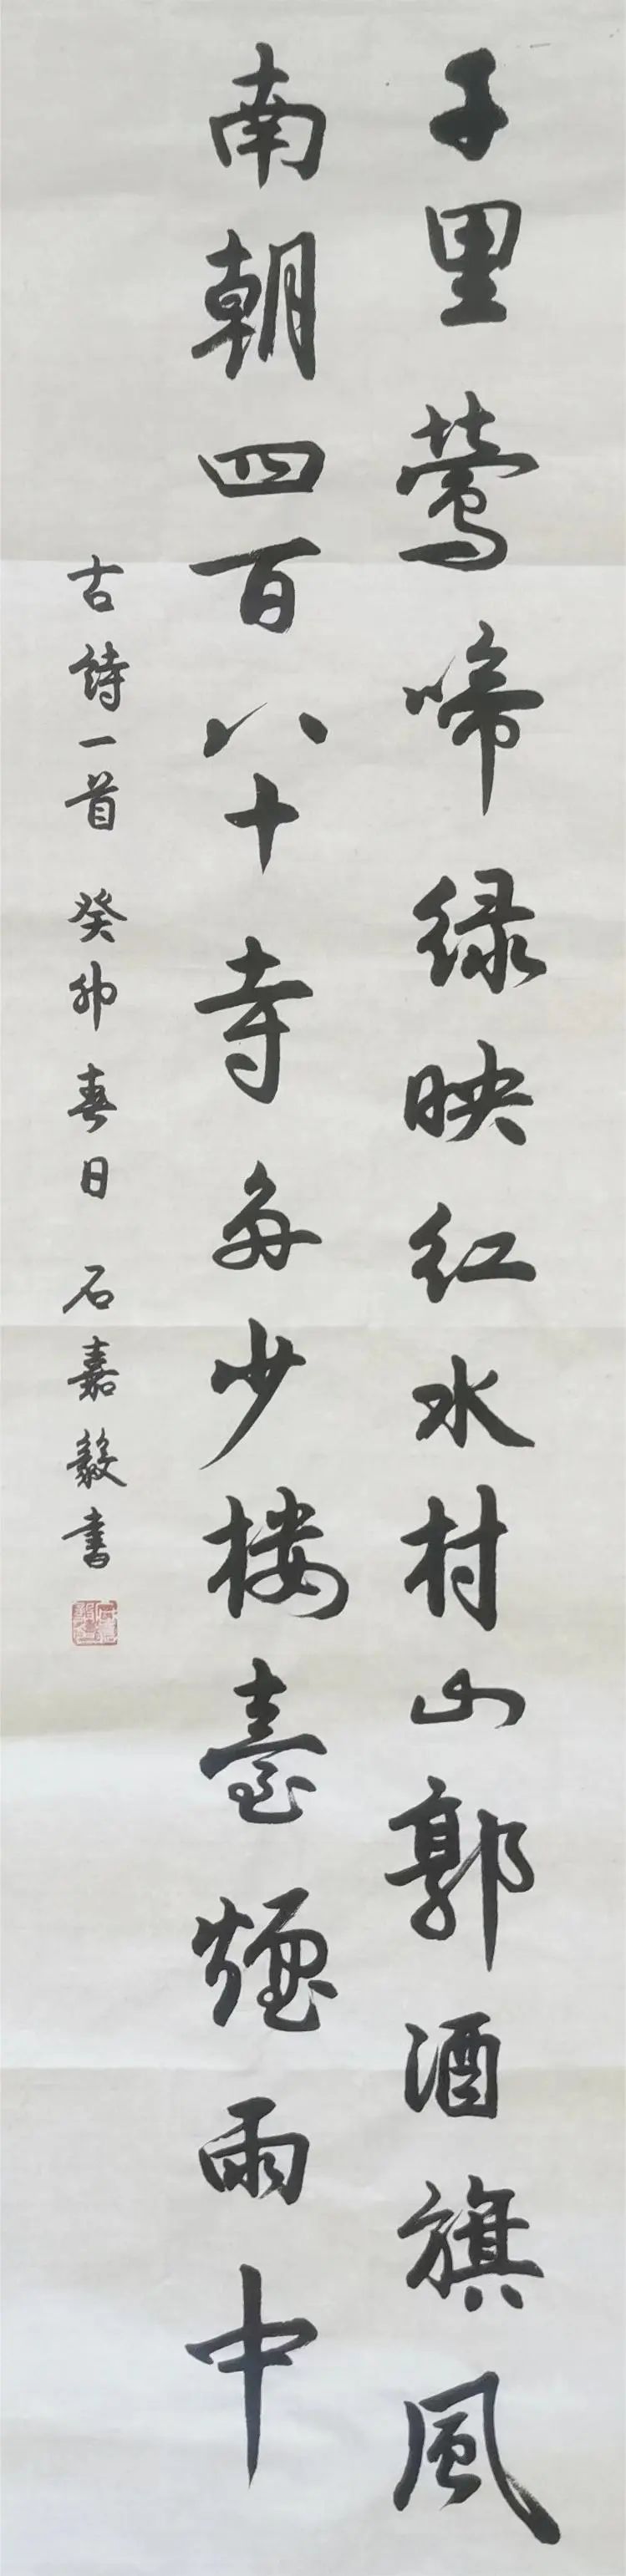 子里鶯啼绿映红水村山郭酒旗風
南朝四百八十寺每少楼臺煙雨中
古詩一首 癸卯春日 石嘉毅書